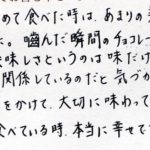 めて食べた時は、あまりの
た。噛んだ瞬間のチョコレー
美味しさというのは味だけ
関係しているのだと気づか
をかけて、大切に味わって
食べている時、本当に幸せで